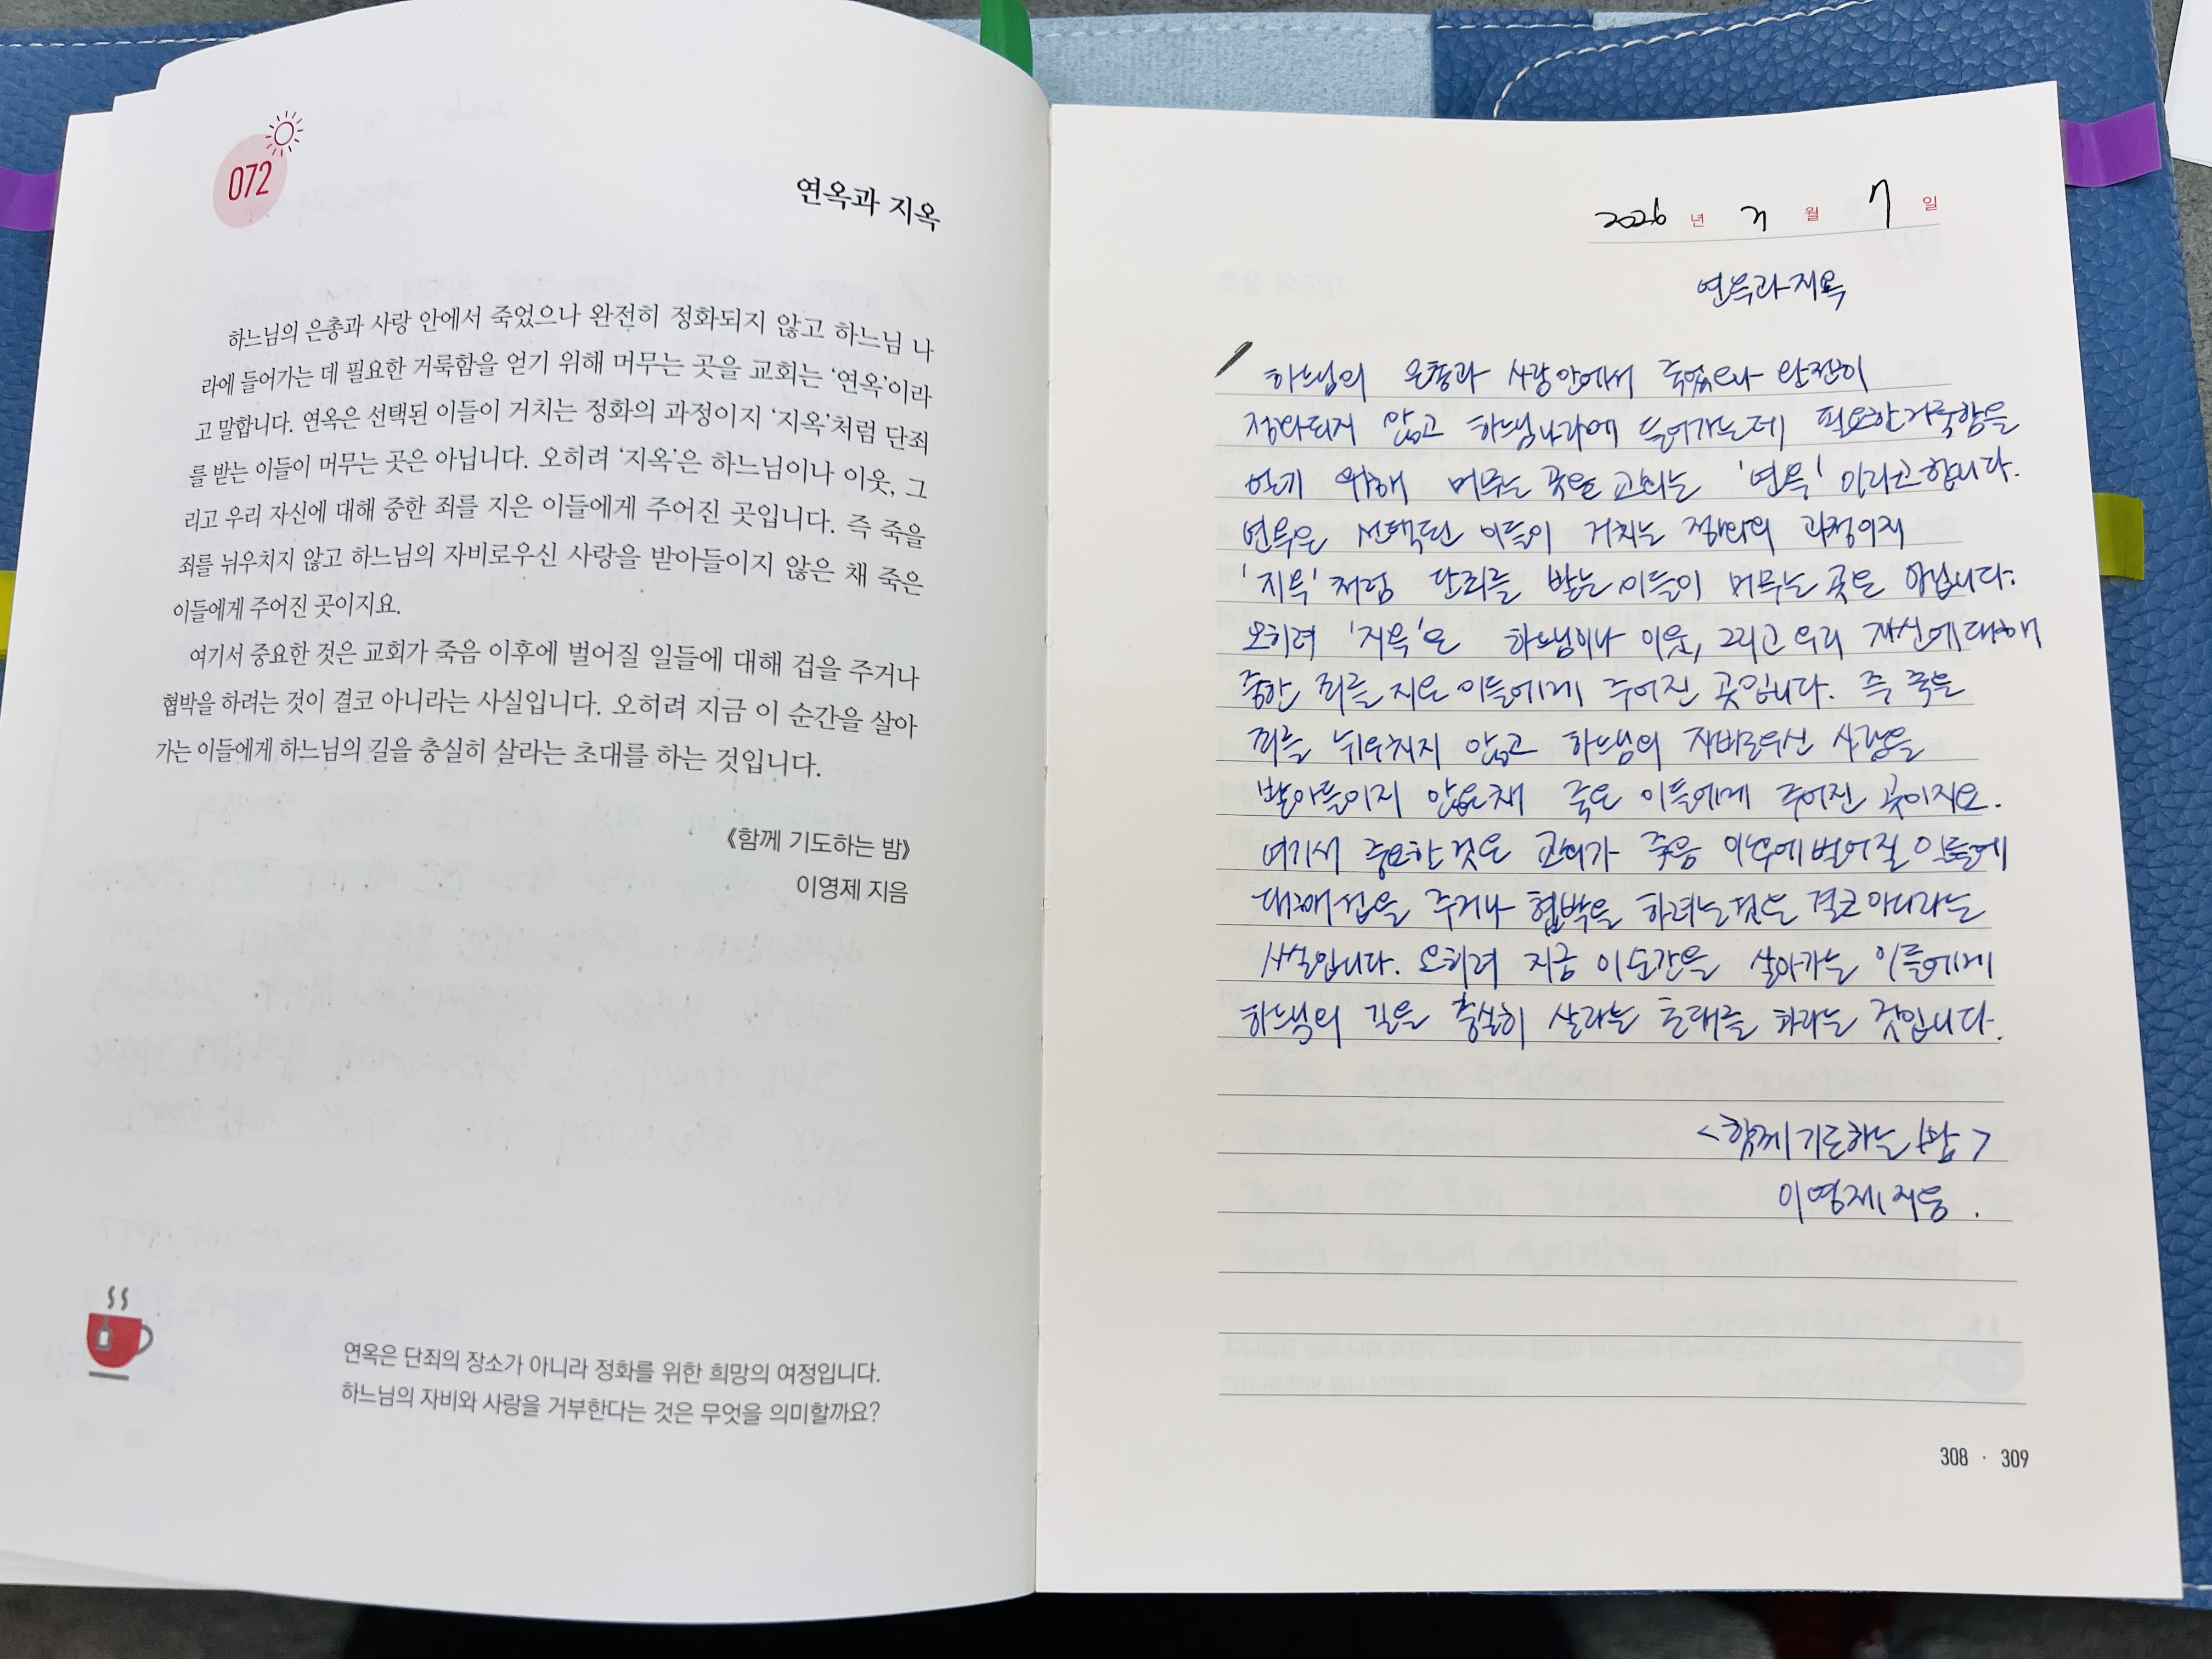 072
연옥과 지옥
하느님의 은총과 사랑 안에서 죽었으나 완전히 정화되지 않고 하느님 나
라에 들어가는 데 필요한 거룩함을 얻기 위해 머무는 곳을 교회는 ‘연옥’이라
고 말합니다. 연옥은 선택된 이들이 거치는 정화의 과정이지 ‘지옥’처럼 단죄
를 받는 이들이 머무는 곳은 아닙니다. 오히려 ‘지옥’은 하느님이나 이웃, 그
리고 우리 자신에 대해 중한 죄를 지은 이들에게 주어진 곳입니다. 즉 죽을
죄를 뉘우치지 않고 하느님의 자비로우신 사랑을 받아들이지 않은 채 죽은
이들에게 주어진 곳이지요.
여기서 중요한 것은 교회가 죽음 이후에 벌어질 일들에 대해 겁을 주거나
협박을 하려는 것이 결코 아니라는 사실입니다. 오히려 지금 이 순간을 살아
가는 이들에게 하느님의 길을 충실히 살라는 초대를 하는 것입니다.
《함께 기도하는 밤》
이영제 지음
연옥은 단죄의 장소가 아니라 정화를 위한 희망의 여정입니다.
하느님의 자비와 사랑을 거부한다는 것은 무엇을 의미할까요?
2026 년 월 7 일
연옥과 지옥
하느님의 은총과 사랑 안에서 죽었으나 완전히
정화되지 않고 하느님나라에 들어가는데 필요한 거룩함을
얻기 위해 머무는 곳을 교회는 '연옥' 이라고 합니다.
연옥은 선택된 이들이 거치는 정화의 과정이지
'지옥' 처럼 단죄를 받는 이들이 머무는 곳은 아닙니다.
오히려 '지옥'은 하느님이나 이웃, 그리고 우리 자신에 대해
중한 죄를 지은 이들에게 주어진 곳입니다. 즉 죽을
죄를 뉘우치지 않고 하느님의 자비로우신 사랑을
받아들이지 않은채 죽은 이들에게 주어진 곳이지요.
여기서 중요한 것은 교회가 죽음 이후에 벌어질 일들에
대해 겁을 주거나 협박을 하려는것은 결코 아니라는
사실입니다. 오히려 지금 이 순간을 살아가는 이들에게
하느님의 길을 충실히 살라는 초대를 하라는 것입니다.
<함께 기도하는 밤>
이영제 지음.
308 · 309